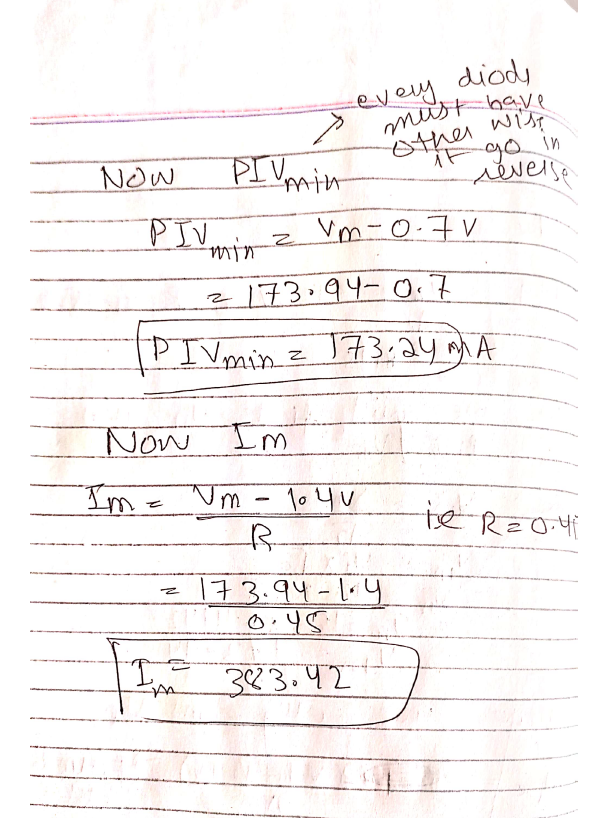 every diods
must have
other wise
it go in
reverse
Now PIVmin
PIVmin = Vm - 0.7 V
= 173.94 - 0.7
PIVmin = 173.24 mA
Now Im
Im = Vm - 1.4V
R
ie R = 0.4
= 173.94 - 1.4
0.45
Im = 383.42